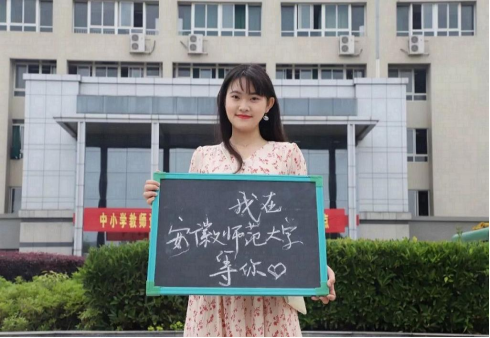 中小学教师
点
我在
安徽师范大学
等你♡